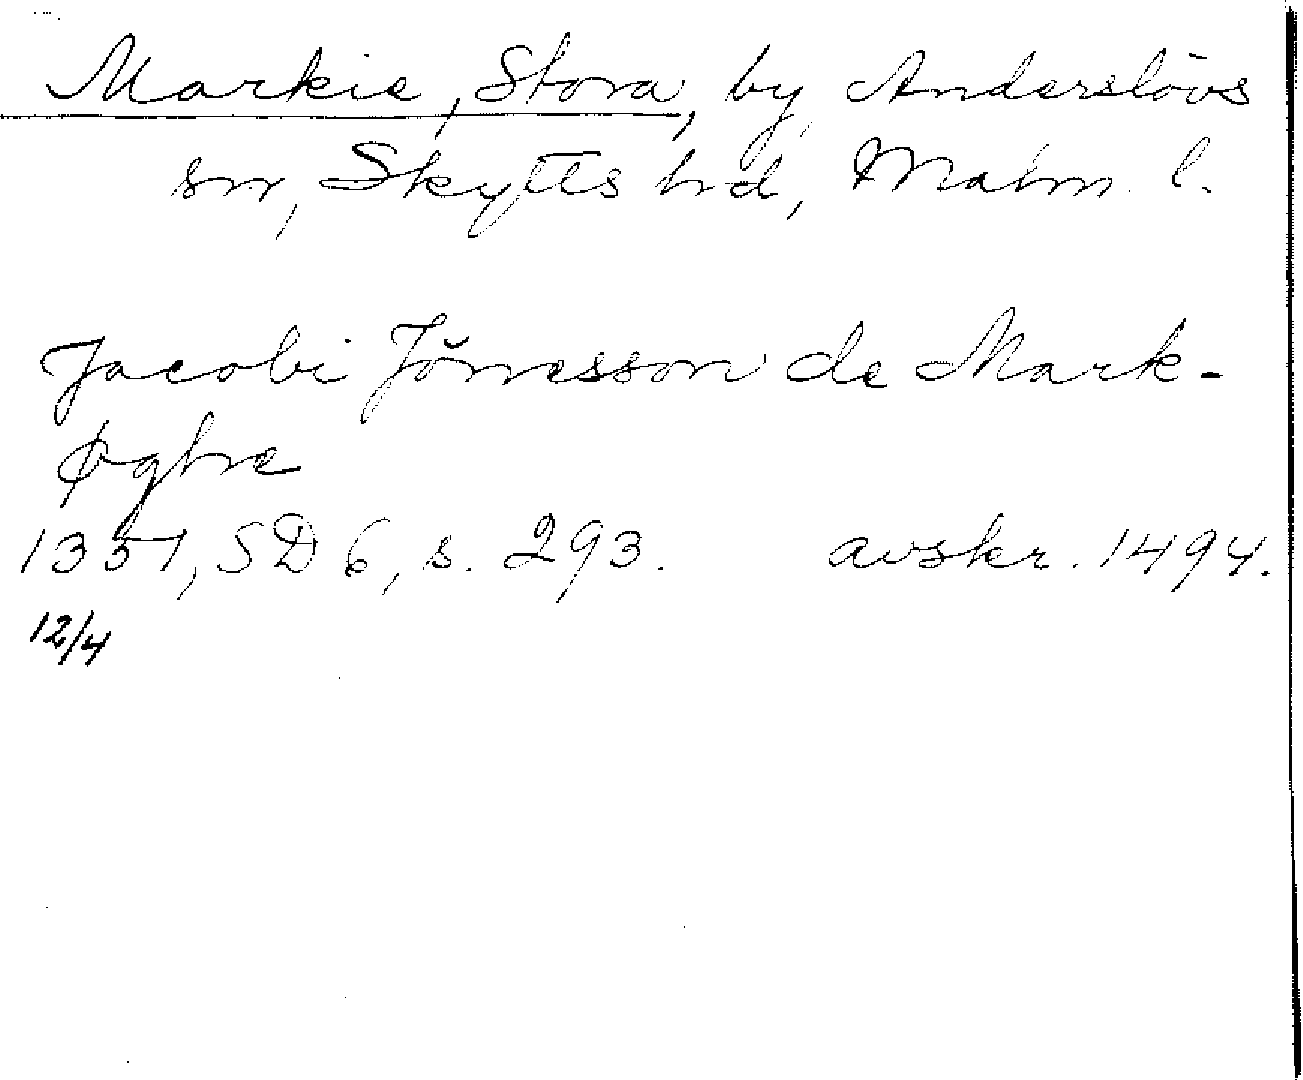 Markie, Stora, by, Anderslövs
sn, Skytts hd, Malm. l.
Jacobi Jönesson de Mark-
øghe
1351, SD 6, s. 293. avskr. 1494.
12/4